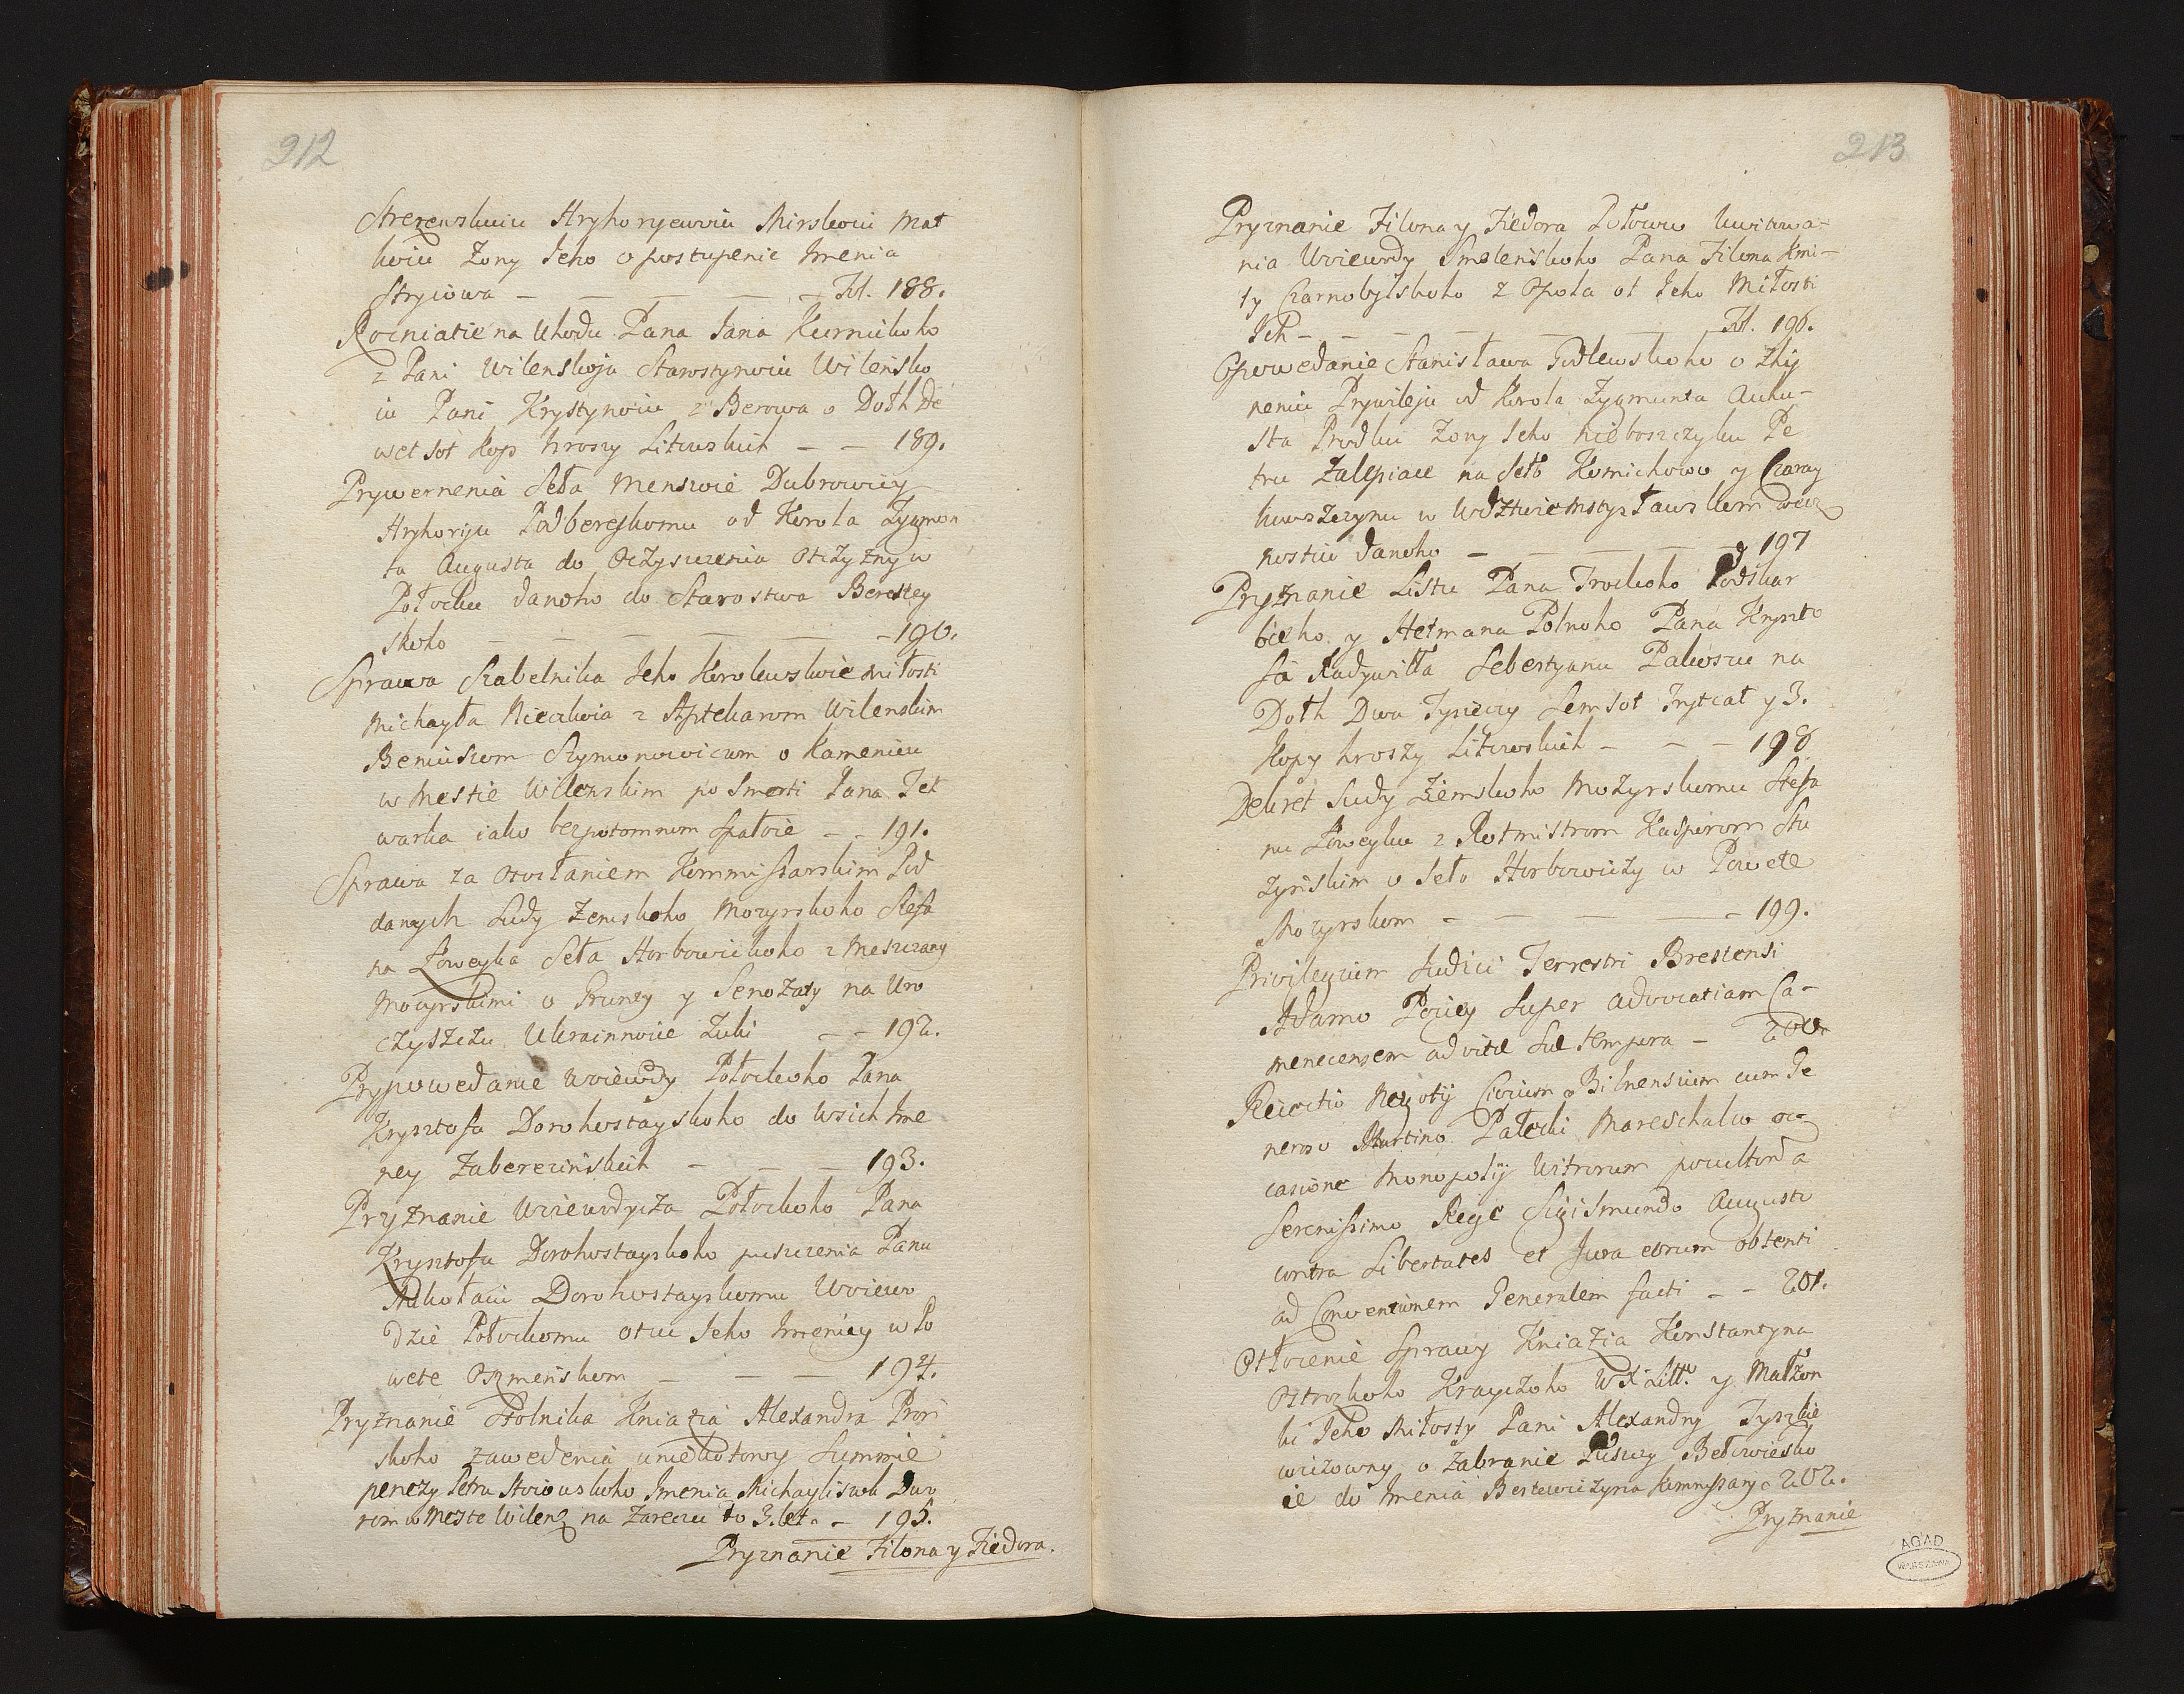 212
Strezewskuiu Hryhoryewiu Mirskoiu Mat
koiu Zony Jeho o postupenie Imenia
Stryiowa - Fol. 188.
Rozniatie na Uhodu Pana Jana Kurnickoho
z Pani Wilenskoju Starostynoiu Wilensko
iu Pani Krystynoiu z Berowa o Dołh De
wet Sot kop hroszy Litowskich - - 189.
Prywernenia Seła Menszoie Dubrowicy
Hryhoriju Podbereskomu od Korola Zygmon
ta Augusta do Oczyszczenia Otczyzny w
Połocku danoho do Starostwa Berestey
skoho - 190.
Sprawa Szabelnika Jeho Korolewskoie Miłosti
Michayła Nieckoia z Aptekarom Wilenskim
Beniuszom Szymonowiczom o Kamenicu
w Mestie Wilenskim po Smerti Pana Tet
warka iako bezpotomnom spałoie - - 191.
Sprawa za Otosłaniem Kommissarskim Pod
danych Sudy Zemskoho Mozyrskoho Stefa
na Łoweyka Seła Horbowickoho z Meszczany
Mozyrskimi o Grunty y Senozaty na Uro
czyszczu Ukrainnoie Luki - - 192.
Prypowedanie Woiewody Połockoho Pana
Krysztofa Dorohostayskoho do Wsich Ime
ney Zaberezinskich - - - 193.
Pryznanie Woiewodycza Połockoho Pana
Krysztofa Dorohostayskoho puszczenia Panu
Mikołaiu Dorohostayskomu Woiewo
dzie Połockomu otcu Jeho Imenicy w Po
wete Oszmenskom - - - 194.
Pryznanie Stolnika Kniazia Alexandra Pron
skoho zawedenia u niekotoroy Summie
penezy Petru Stoiouskoho Imenia Michayliszok Dwo
rom w Meste Wilens na Zareczu do 3. let. - 195.
Pryznanie Filona y Fiedora.
213
Pryznanie Filona y Fiedora Połowu kwitowa-
nia Woiewody Smolenskoho Pana Filona Kmi-
ty Czarnobylskoho z Opeka ot Jeho Miłosti
Ich - Fol. 196.
Opowedanie Stanisława Podlewskoho o Zhy
neniu Prywileju od Korola Zygmunta Auhu-
sta Prodku Zony Jeho nieboszczyku Pe
tru Zalepiace na Seło Komichowo y Czarny
kowszczynu w Wdztwie Mstysławskom wecz
nostiu danoho - 197
Pryznanie Listu Pana Trockoho Podskar
bieho y Hetmana Polnoho Pana Kryszto
fa Radywiła Sebestyanu Pakoszu na
Dołh Dwa Tysieczy Semsot Trytcat y 3.
Kopy hroszy Litowskich - - - 198
Dekret Sudy Ziemskoho Mozyrskomu Stefa
nu Łoweyku z Rotmistrom Kasporom Stu
zynskim o Seło Horbowiczy w Powete
Mozyrskom - 199.
Privilegium Judici Terrestri Brestensi
Adamo Pociey Super Advocatiam Ca-
menecensem ad vitæ suæ tempora - 200.
Reiectio Negotij Civium Vilnensium cum Ge
neroso Martino Pałecki Mareschalco oc-
casione Monopolij Vitrorum
Serenissimo Rege Sigismundo Augusto
contra Libertates et Jura eorum obtenti
ad Conventionem Generalem facti - - 201.
Otłożenie Sprawy Kniazia Konstantyna
Ostrozkoho Krayczoho W X Litto y Małżon
ki Jeho Miłosty Pani Alexandry Tyszkie
wiczowny o Zabranie Puszczy Bełowiesko
ie do Imenia Bestewiczyna Kommissary. 202.
Pryznanie
AGAD
WARSZAWA